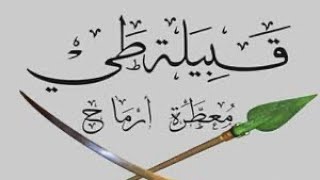 قَبِيلَة طَيْ
مُعطَّرة أرْمَاح